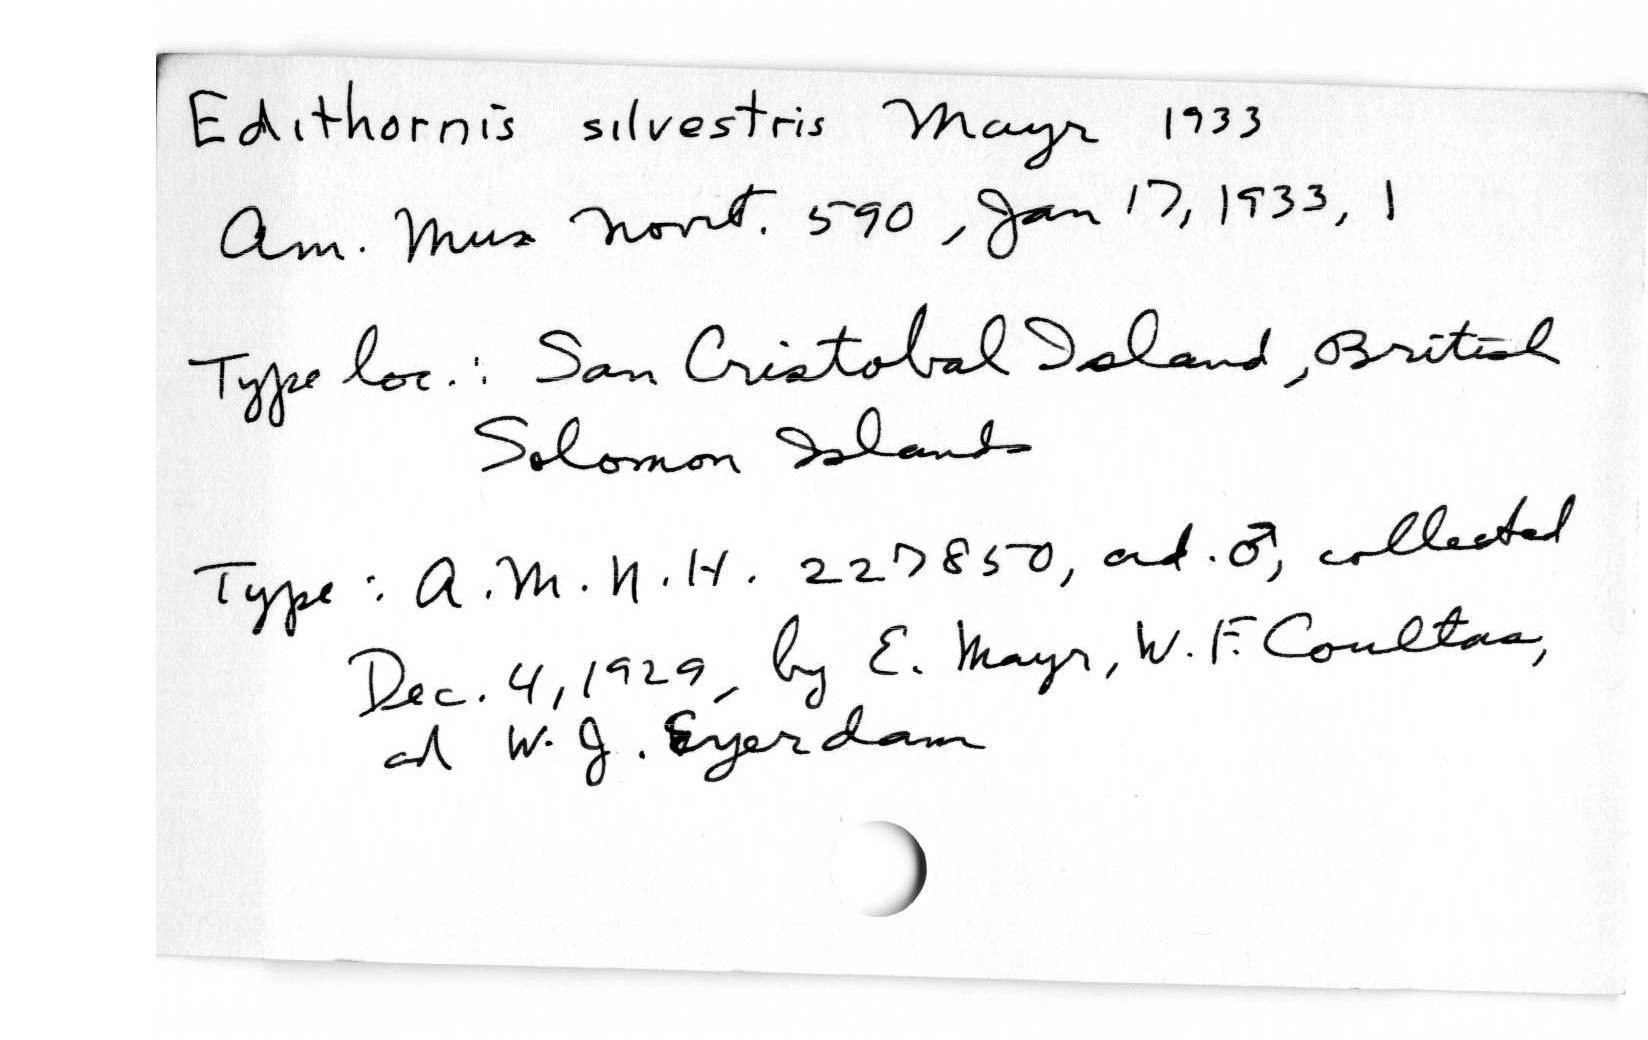 Edithornis silvestris Mayr 1933
Am. Mus Novit. 590, Jan 17, 1933, 1
Type loc.: San Cristobal Island, British
Solomon Islands
Type: A.M.N.H. 227850, ad. ♂, collected
Dec. 4, 1929, by E. Mayr, W.F. Coultas,
and W.J. Eyerdam